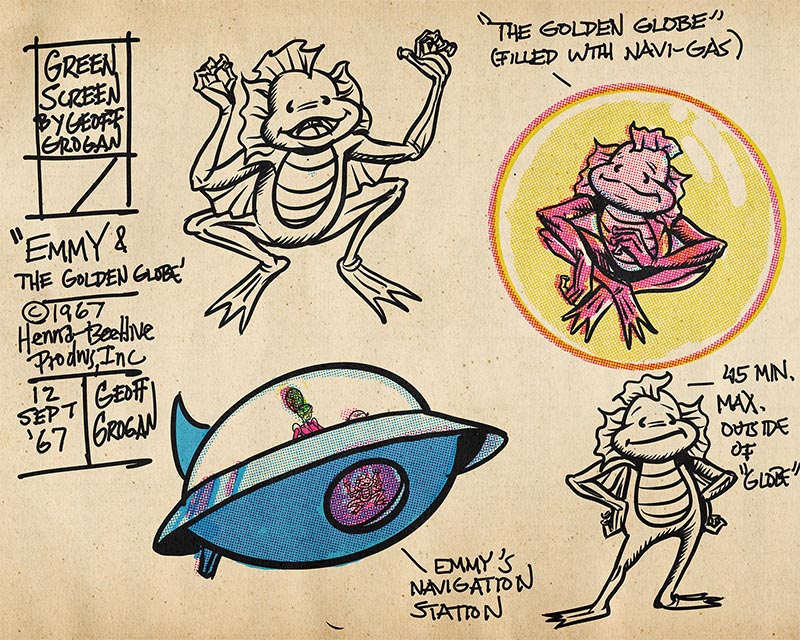 GREEN
SCREEN
BY GEOFF
GROGAN
"EMMY &
THE GOLDEN GLOBE'
©1967
Henna-BeeHive
Produs, Inc
12
SEPT
'67
GEOFF
GROGAN
"THE GOLDEN GLOBE"
(FILLED WITH NAVI-GAS)
45 MIN.
MAX.
OUTSIDE
OF
"GLOBE"
EMMY'S
NAVIGATION
STATION